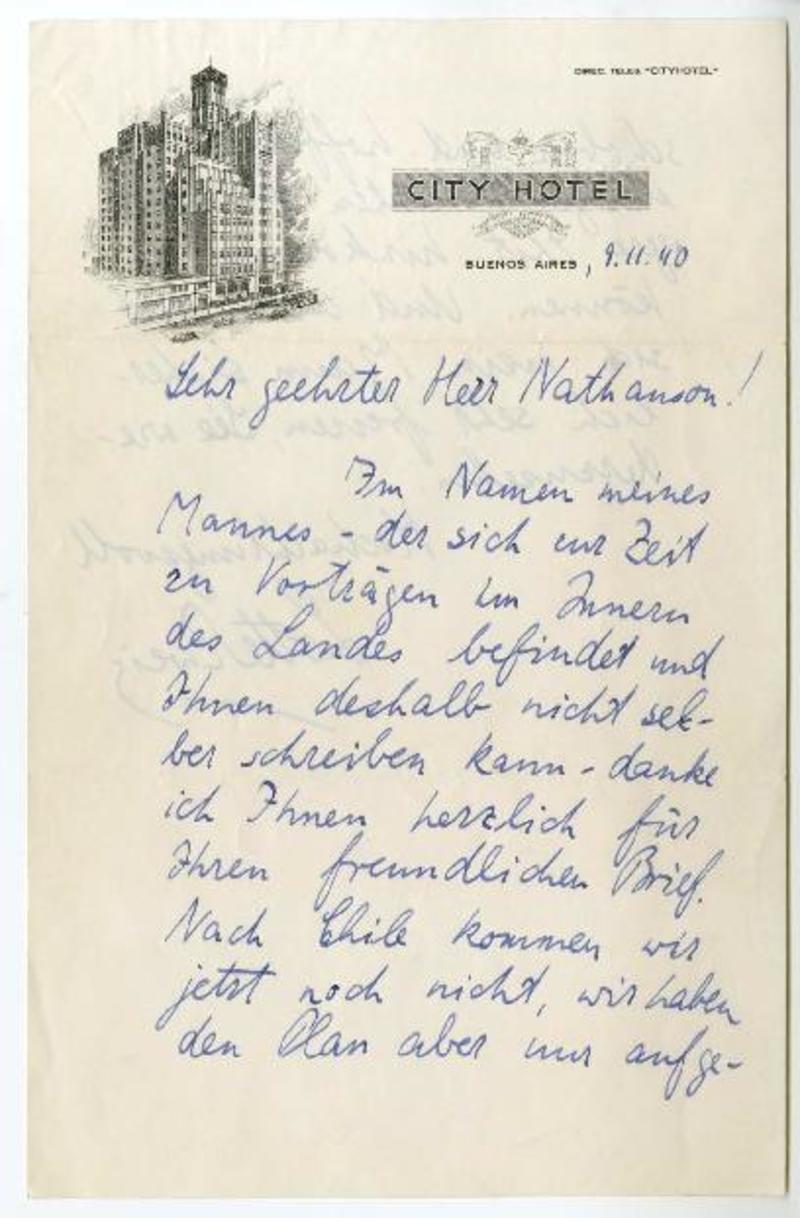 DIREC. TELEG. "CITYHOTEL"
CITY HOTEL
BUENOS AIRES, 9.11.40
Sehr geehrter Herr Nathanson!
Im Namen meines
Mannes - der sich zur Zeit
zu Vorträgen im Innern
des Landes befindet und
Ihnen deshalb nicht sel-
ber schreiben kann - danke
ich Ihnen herzlich für
Ihren freundlichen Brief.
Nach Chile kommen wir
jetzt noch nicht, wir haben
den Plan aber nur aufge-